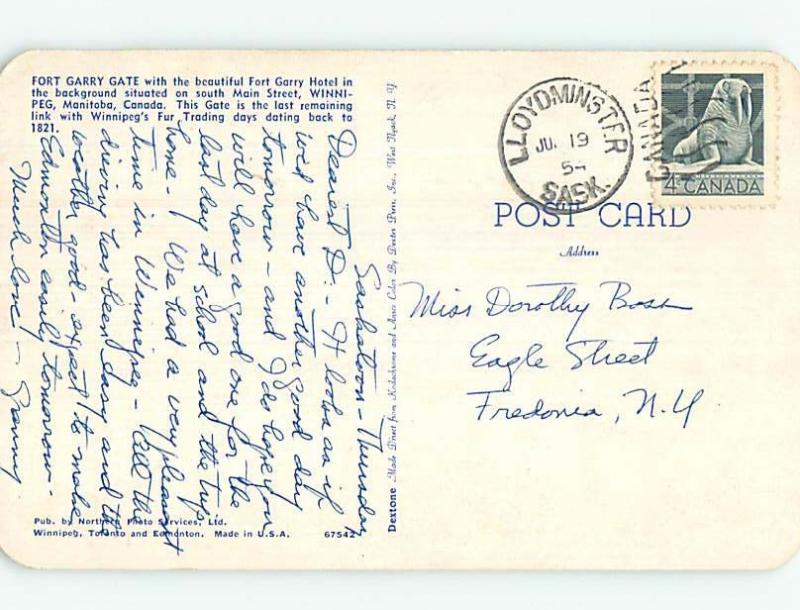 FORT GARRY GATE with the beautiful Fort Garry Hotel in
the background situated on south Main Street, WINNI-
PEG, Manitoba, Canada. This Gate is the last remaining
link with Winnipeg's Fur Trading days dating back to
1821.
Saskatoon - Thursday
Dearest D. - It looks as if
will have another good day
tomorrow - and I do hope you
will have a good one for the
last day at school and the trip
home - We had a very pleasant
time in Winnipeg - All the
driving has been easy and the
weather good - expect to make
Edmonton easily tomorrow -
Much love - Granny
Pub. by Northern Photo Services, Ltd.
Winnipeg, Toronto and Edmonton. Made in U.S.A. 67542
Dextone Made Direct from Kodachrome and Ansco Color By Dexter Press, Inc., West Nyack, N. Y.
LLOYDMINSTER
JU 19
54
SASK.
CANADA
4¢ CANADA
POST CARD
Address
Miss Dorothy
Eagle Street
Fredonia, N.Y